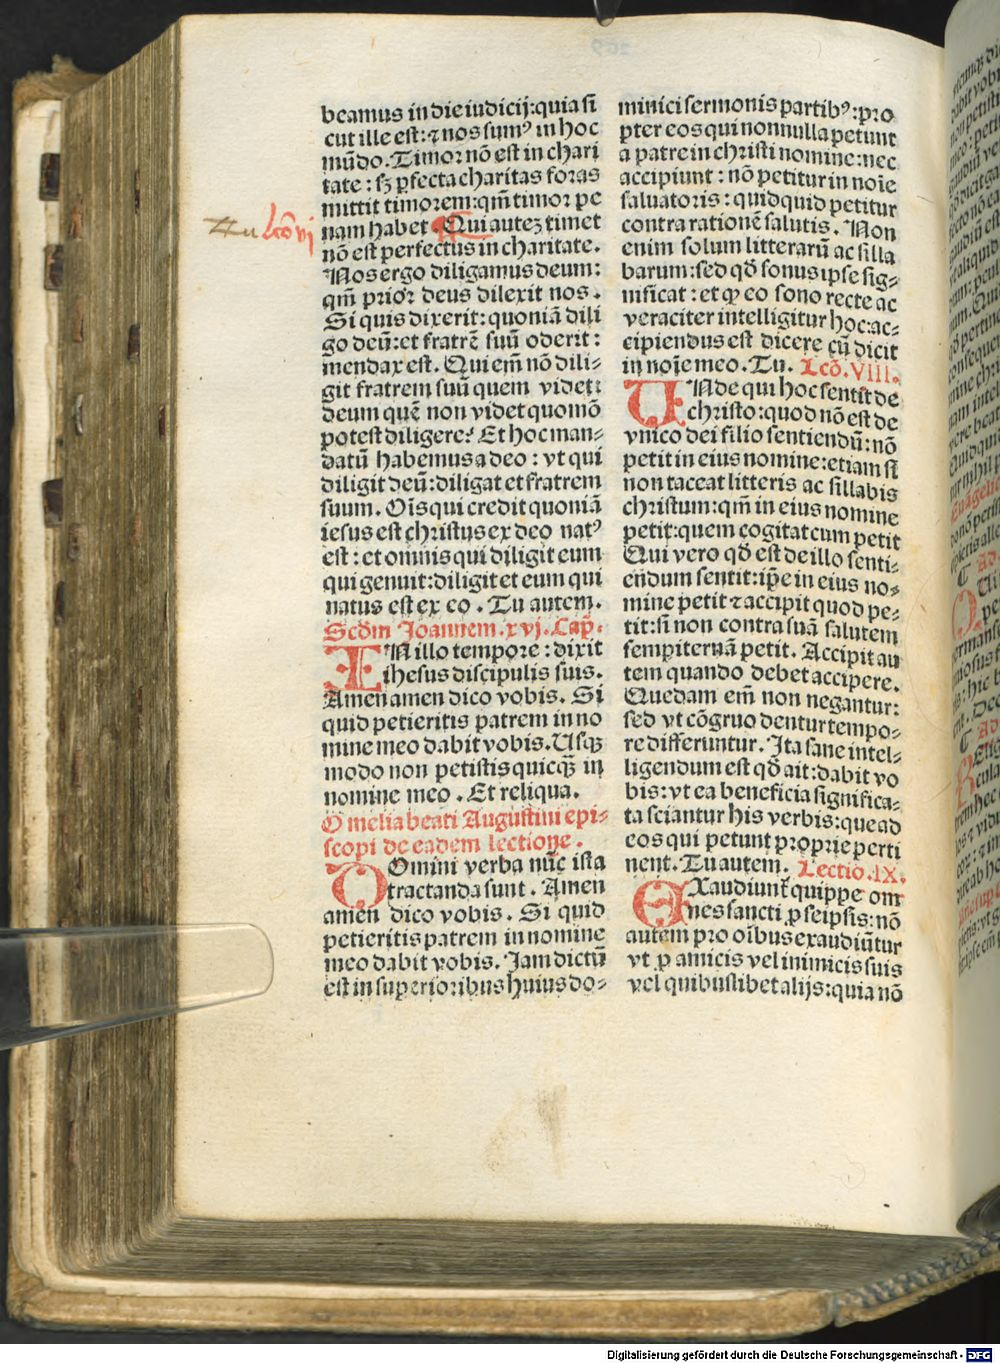 beamus in die iudicij: quia si
cut ille est: ⁊ nos sumꝰ in hoc
mũdo. Timor nõ est in chari
tate: sꝫ ꝑfecta charitas foras
mittit timorem: qm̃ timor pe
nam habet Qui auteꝫ timet
nõ est perfectus in charitate.
Nos ergo diligamus deum:
qm̃ prior deus dilexit nos.
Si quis dixerit: quoniã dili
go deũ: et fratrẽ suũ oderit:
mendax est. Qui em̃ nõ dili-
git fratrem suũ quem videt:
deum quẽ non videt quomõ
potest diligere? Et hoc man-
datũ habemus a deo: vt qui
diligit deũ: diligat et fratrem
suum. Oĩs qui credit quoniã
iesus est christus ex deo natꝰ
est: et omnis qui diligit eum
qui genuit: diligit et eum qui
natus est ex eo. Tu autem.
Scd̃m Joannem. xvj. Cap̃.
IN illo tempore: dixit
ihesus discipulis suis.
Amen amen dico vobis. Si
quid petieritis patrem in no
mine meo dabit vobis. Usqꝫ
modo non petistis quicqꝫ in
nomine meo. Et reliqua.
Omelia beati Augustini epi-
scopi de eadem lectione.
DOmini verba nũc ista
tractanda sunt. Amen
amen dico vobis. Si quid
petieritis patrem in nomine
meo dabit vobis. Jam dictũ
est in superioribus huius do-
Tu lcõ vi
minici sermonis partibꝰ: pro
pter eos qui nonnulla petunt
a patre in christi nomine: nec
accipiunt: nõ petitur in noĩe
saluatoris: quidquid petitur
contra rationẽ salutis. Non
enim solum litterarũ ac silla
barum: sed qd̃ sonus ipse sig-
nificat: et ꝙ eo sono recte ac
veraciter intelligitur hoc: ac-
cipiendus est dicere cũ dicit
in noĩe meo. Tu. Lcõ. VIII.
UNde qui hoc sentit de
christo: quod nõ est de
vnico dei filio sentiendũ: nõ
petit in eius nomine: etiam si
non taceat litteris ac sillabis
christum: qm̃ in eius nomine
petit: quem cogitat cum petit
Qui vero qd̃ est de illo senti-
endum sentit: ip̃e in eius no-
mine petit ⁊ accipit quod pe-
tit: si non contra suã salutem
sempiternã petit. Accipit au
tem quando debet accipere.
Quedam em̃ non negantur:
sed vt cõgruo dentur tempo-
re differuntur. Ita sane intel-
ligendum est qd̃ ait: dabit vo
bis: vt ea beneficia significa-
ta sciantur his verbis: que ad
eos qui petunt proprie perti
nent. Tu autem. Lectio. IX.
EXaudiunt̃ quippe om̃
nes sancti ꝓ seipsis: nõ
autem pro oĩbus exaudiũtur
vt ꝓ amicis vel inimicis suis
vel quibuslibet alijs: quia nõ
Digitalisierung gefördert durch die Deutsche Forschungsgemeinschaft - DFG